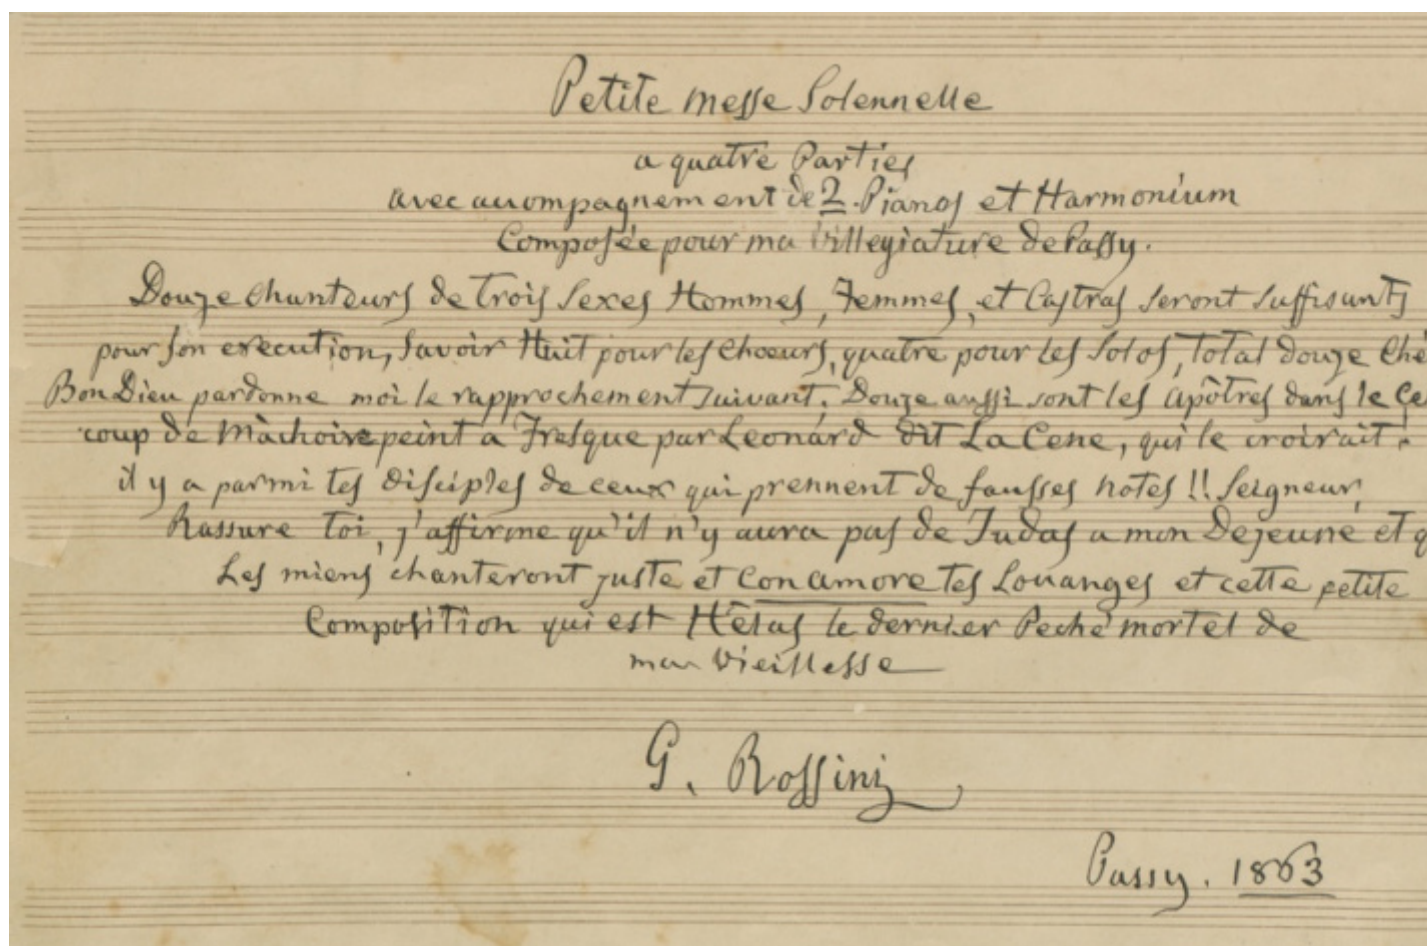 Petite messe Solennelle
a quatre Parties
avec accompagnement de 2 Pianos et Harmonium
Composée pour ma Villegiature de Passy.
Douze chanteurs de trois Sexes Hommes, Femmes, et Castras seront suffisants
pour son execution, Savoir Huit pour les Choeurs, quatre pour les Solos, Total douze Ché
Bon Dieu pardonne moi le rapprochement suivant. Douze aussi sont les Apôtres dans le Ce
coup de Mâchoire peint a Fresque par Leonard dit La Cene, qui le croirait!
il y a parmi tes disciples de ceux qui prennent de fausses notes!! Seigneur,
Rassure toi, j'affirme qu'il n'y aura pas de Judas a mon Dejeuné et q
Les miens chanteront juste et Con amore tes Louanges et cette petite
Composition qui est Hêlas le dernier Peché mortel de
ma Vieillesse
G. Rossini
Passy. 1863